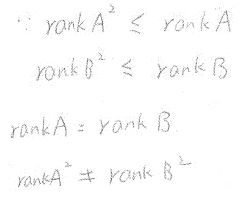 ∵ rank A² ≤ rank A
rank B² ≤ rank B
rank A = rank B.
rank A² ≠ rank B²